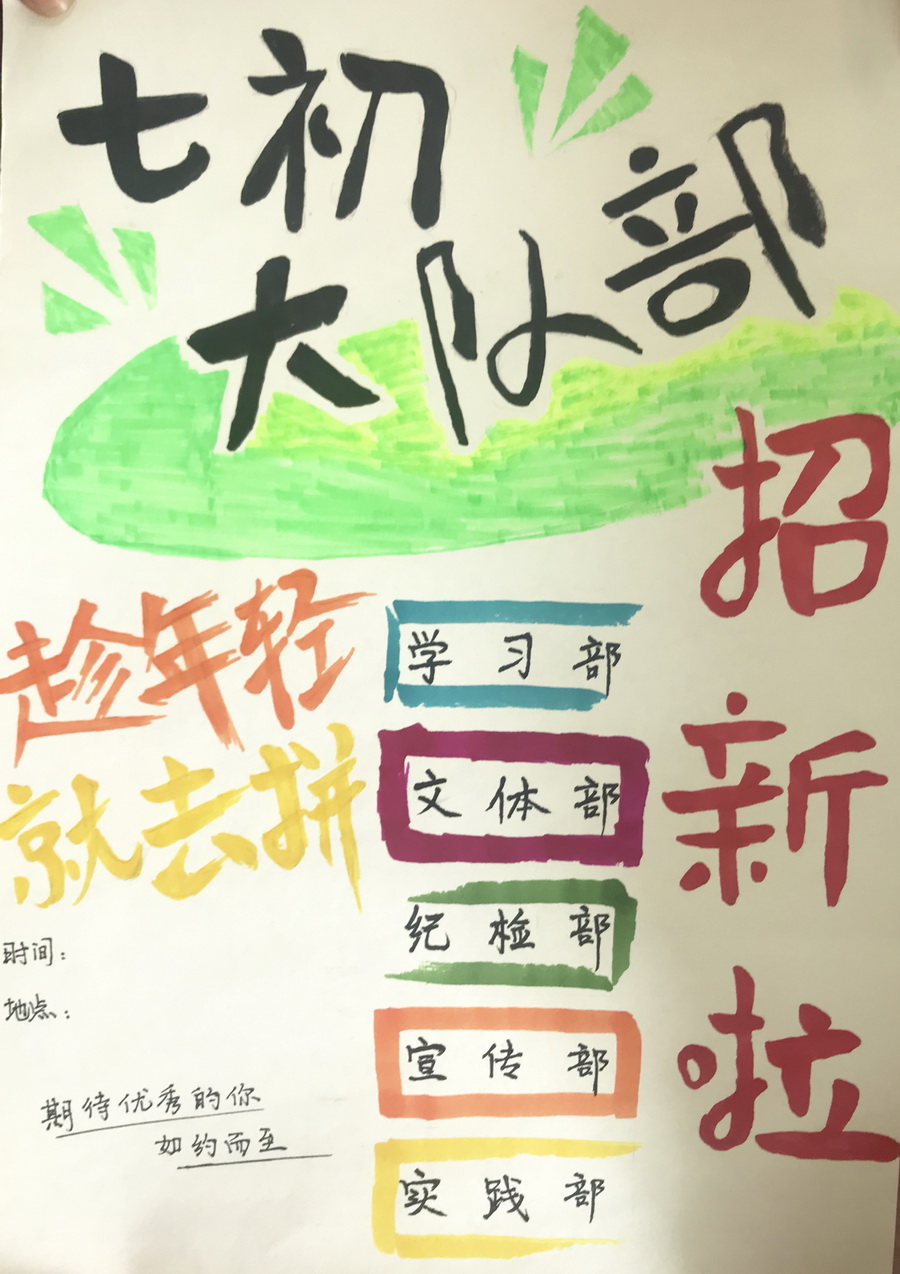 七初
大队部
招新啦
趁年轻
就去拼
学习部
文体部
纪检部
宣传部
实践部
时间：
地点：
期待优秀的你
如约而至